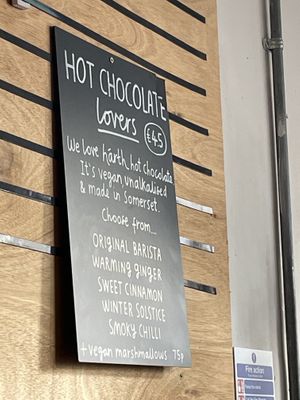 HOT CHOCOLATE
lovers
£4.5
We love Kärth hot chocolate
It's vegan, unalkalised
& made in Somerset.
Choose from...
ORIGINAL BARISTA
WARMING GINGER
SWEET CINNAMON
WINTER SOLSTICE
SMOKY CHILLI
+ vegan marshmallows 75p
Fire action